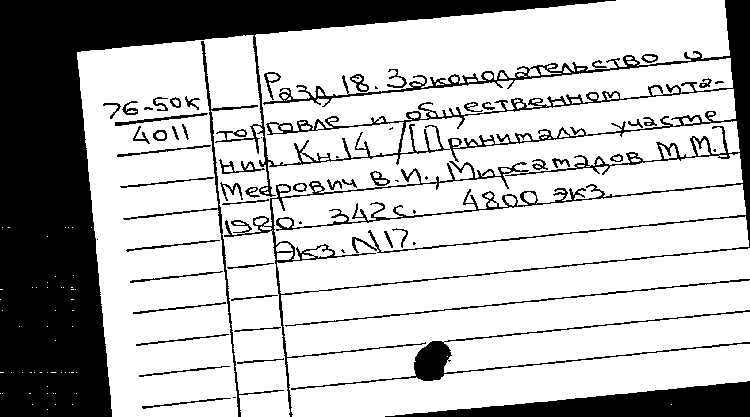 Разд. 18. Законодательство о
76-50к
4011
торговле и общественном пита-
нии. Кн. 14. / [Принимали участие
Меерович В.И., Мирсагатов М.М.]
1980. 342 с. 4800 экз.
Экз. N 17.